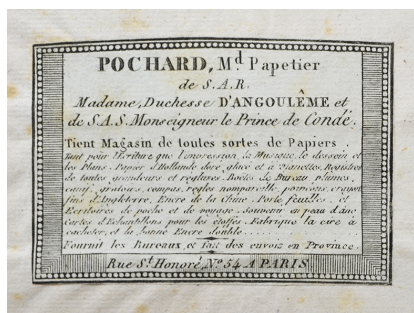 POCHARD, Md Papetier
de S.A.R.
Madame, Duchesse D'ANGOULÊME et
de S.A.S. Monseigneur le Prince de Condé.
Tient Magasin de toutes sortes de Papiers
tant pour l'Ecriture que l'impression, la Musique, le dessein et
les Plans. Papier d'Hollande doré, glacé et à Vignettes, Registres
de toutes grandeurs et reglures. Boetes de Bureau, plumes,
canif, gratoirs, compas, regles nompareille, poinçons, crayons
fins d'Angleterre, Encre de la Chine. Porte feuilles et
Ecritoires de poche et de voyage. Souvenir en peau d'âne
Cartes d'Echantillons pour les étoffes. Fabrique la cire à
cacheter, et la bonne Encre double
Fournit les Bureaux, et fait des envois en Province.
Rue St. Honoré, No. 54 A PARIS